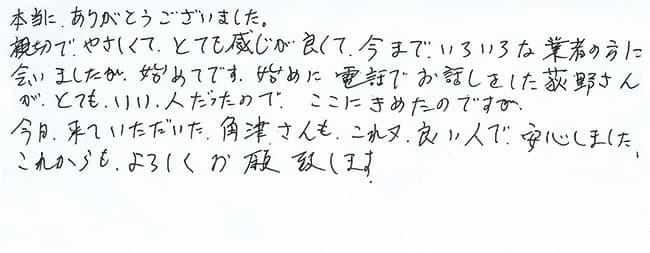 本当に、ありがとうございました。
親切で、やさしくて、とても感じが良くて、今まで、いろいろな業者の方に
会いましたが、始めてです。始めに電話でお話しをした荻野さん
が、とても、いい、人だったので、ここにきめたのですが、
今日、来ていただいた、角津さんも、これ又、良い人で、安心しました、
これからも、よろしくお願致します